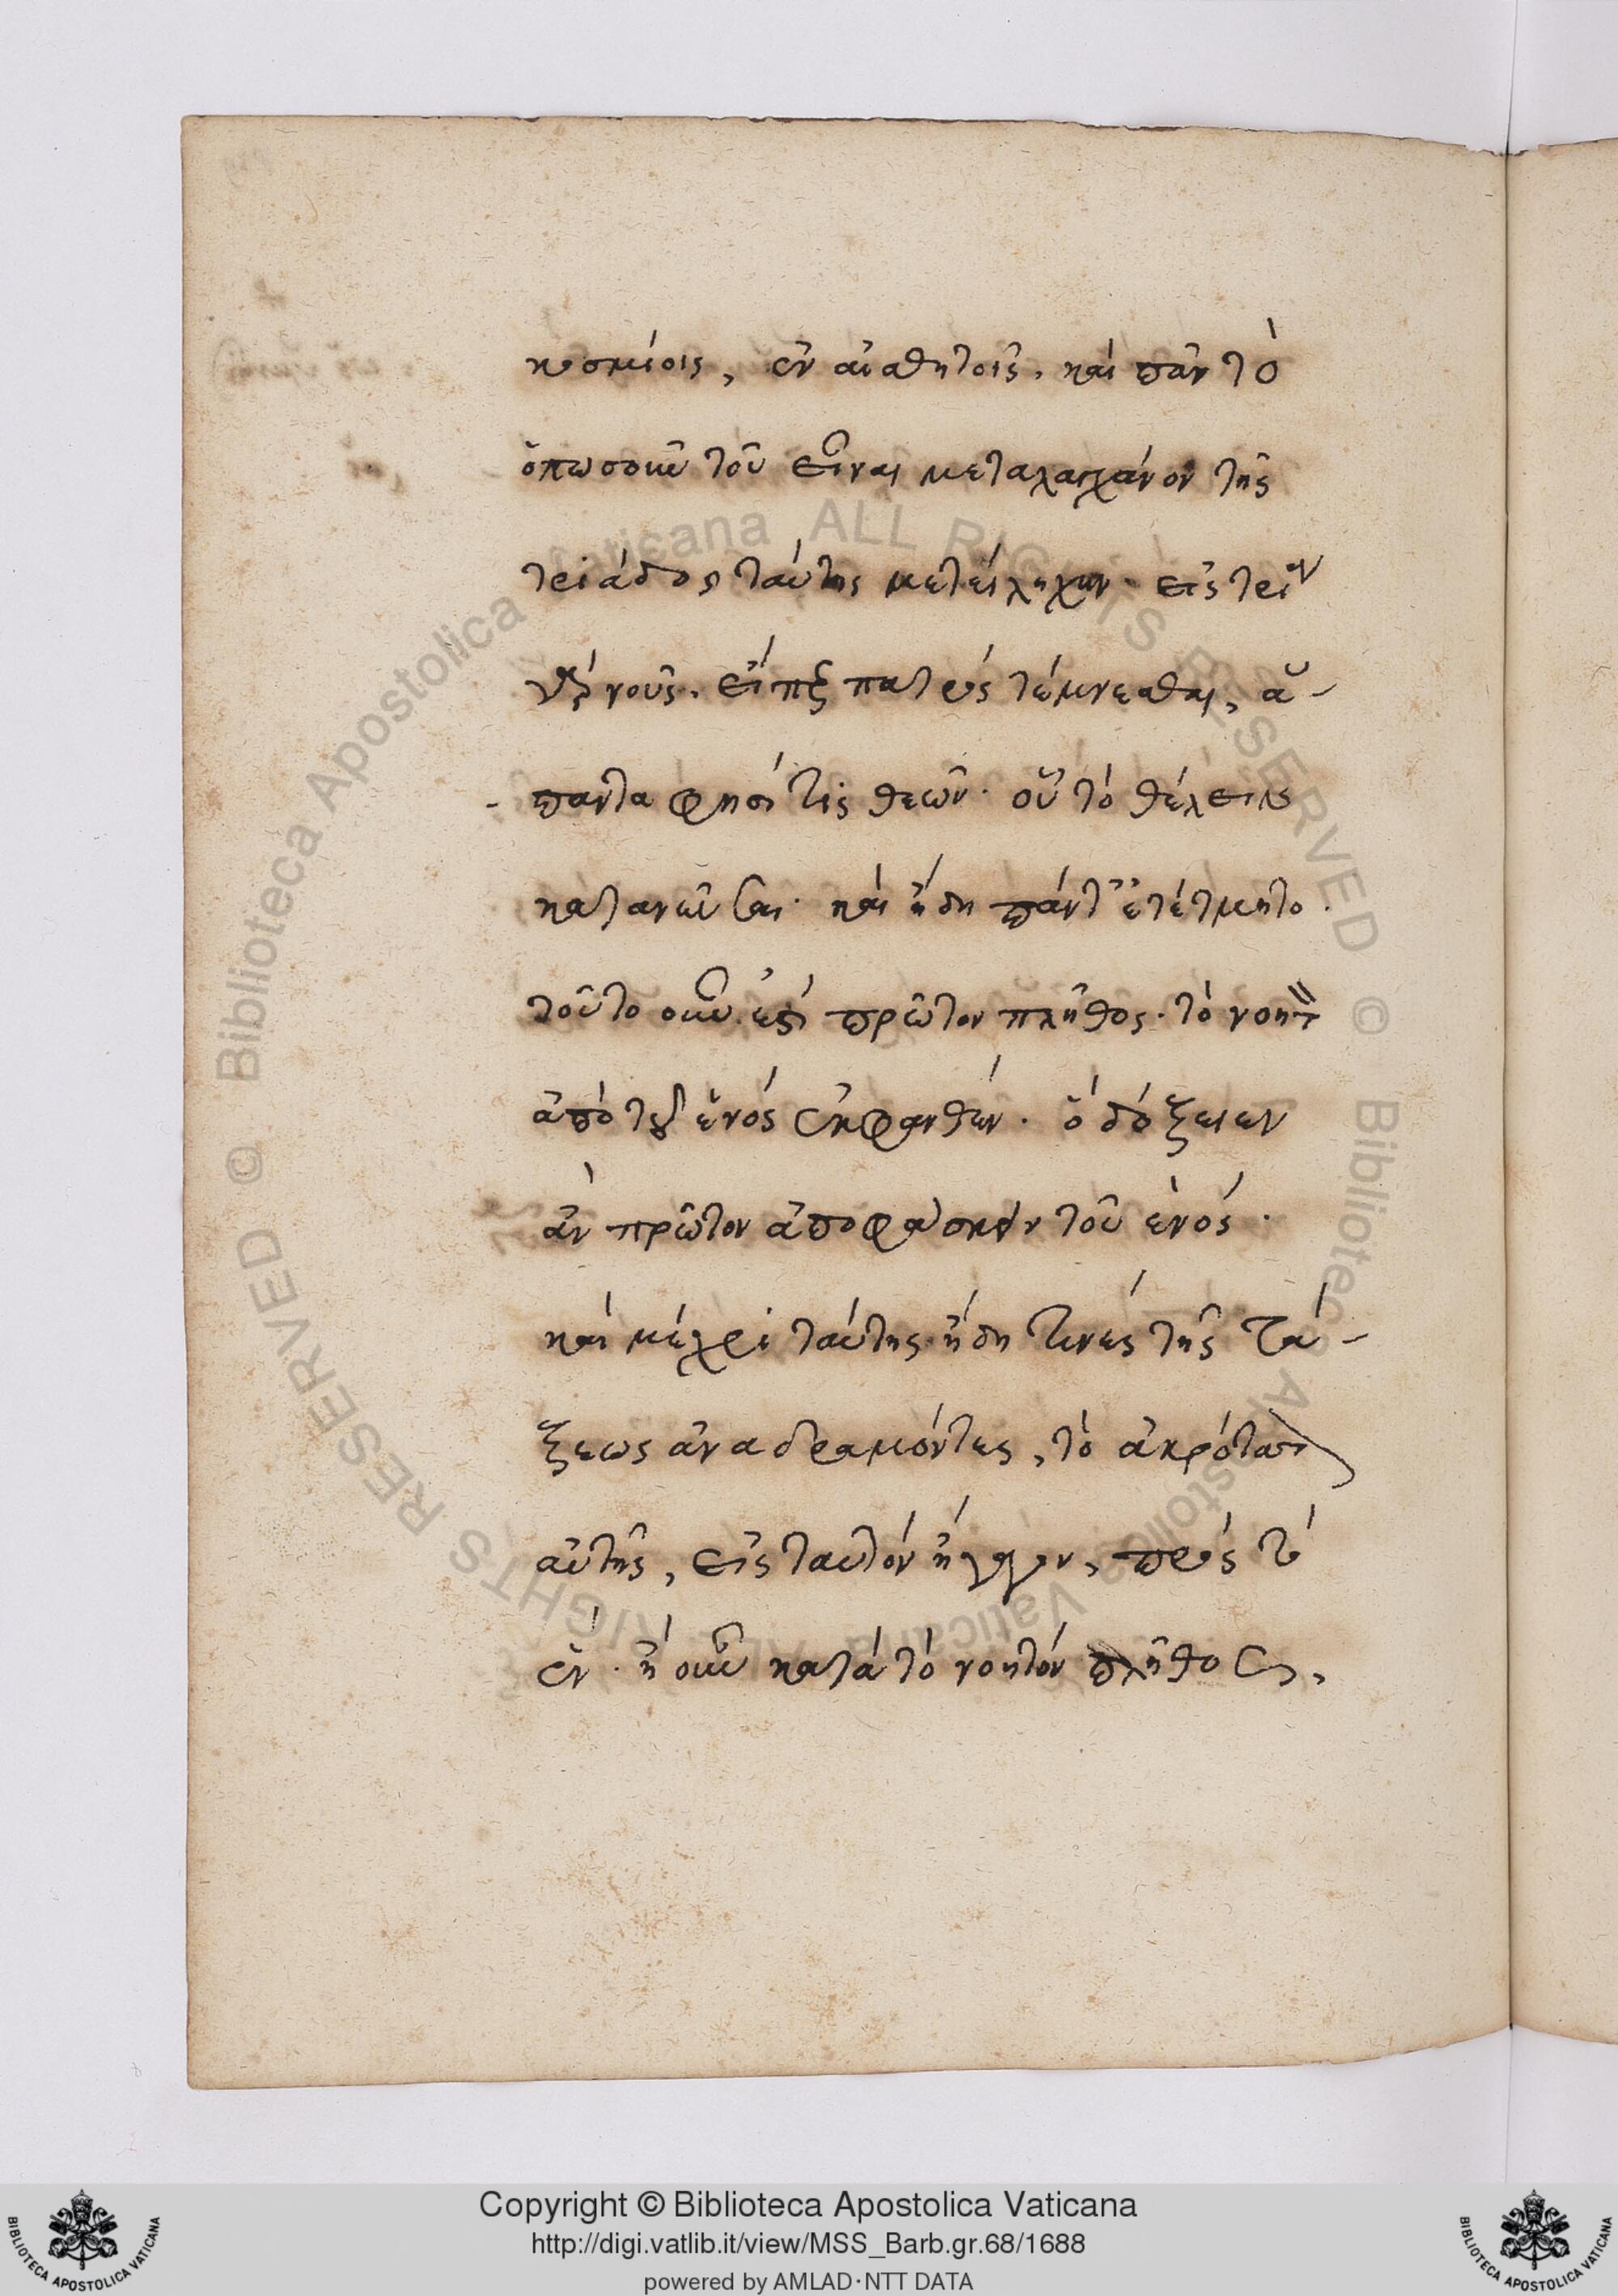 κοσμίοις, ἐν αἰσθητοῖς. καὶ πᾶν τὸ
ὁπωσοῦν τοῦ εἶναι μεταλαγχάνον τῆς
τριάδος ταύτης μετείληχεν· εἰς τρία
γὰρ νοῦς. εἶπε πατρὸς τέμνεσθαι, ἅ-
παντα φησί τις θεῶν· οὗ τὸ θέλειν
κατανεῦσαι· καὶ ἤδη πάντ' ἐτέτμητο.
τοῦτο οὖν ἐστι πρῶτον πλῆθος. τὸ νοητὸν
ἀπὸ τοῦ ἑνὸς ἐκφανθέν. ὃ δόξειεν
ἂν πρῶτον ἀποφάσκειν τοῦ ἑνός.
καὶ μέχρι ταύτης ἤδη τινὲς τῆς τά-
ξεως ἀναδραμόντες, τὸ ἀκρότατον
αὐτῆς, εἰς ταυτὸν ἤγαγον, πρὸς τὸ
ἕν. ἢ οὖν κατὰ τὸ νοητὸν πλῆθος,
Copyright © Biblioteca Apostolica Vaticana
http://digi.vatlib.it/view/MSS_Barb.gr.68/1688
powered by AMLAD·NTT DATA
© Biblioteca Apostolica Vaticana ALL RIGHTS RESERVED
© Biblioteca Apostolica Vaticana ALL RIGHTS RESERVED
BIBLIOTECA APOSTOLICA VATICANA
BIBLIOTECA APOSTOLICA VATICANA